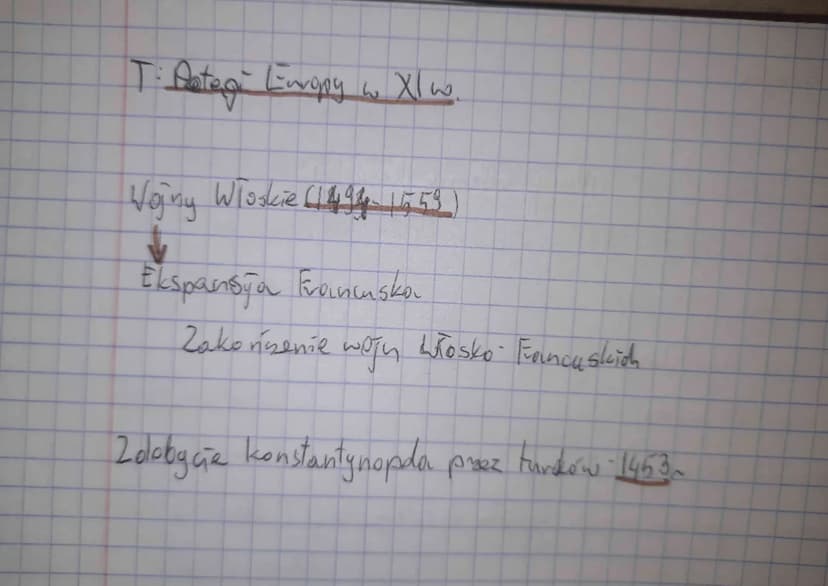 T: Potęgi Europy w XI w.
Wojny Włoskie (1494-1559)
Ekspansja Francuska
Zakończenie wojn Włosko-Francuskich
Zdobycie konstantynopola przez turków-1453r